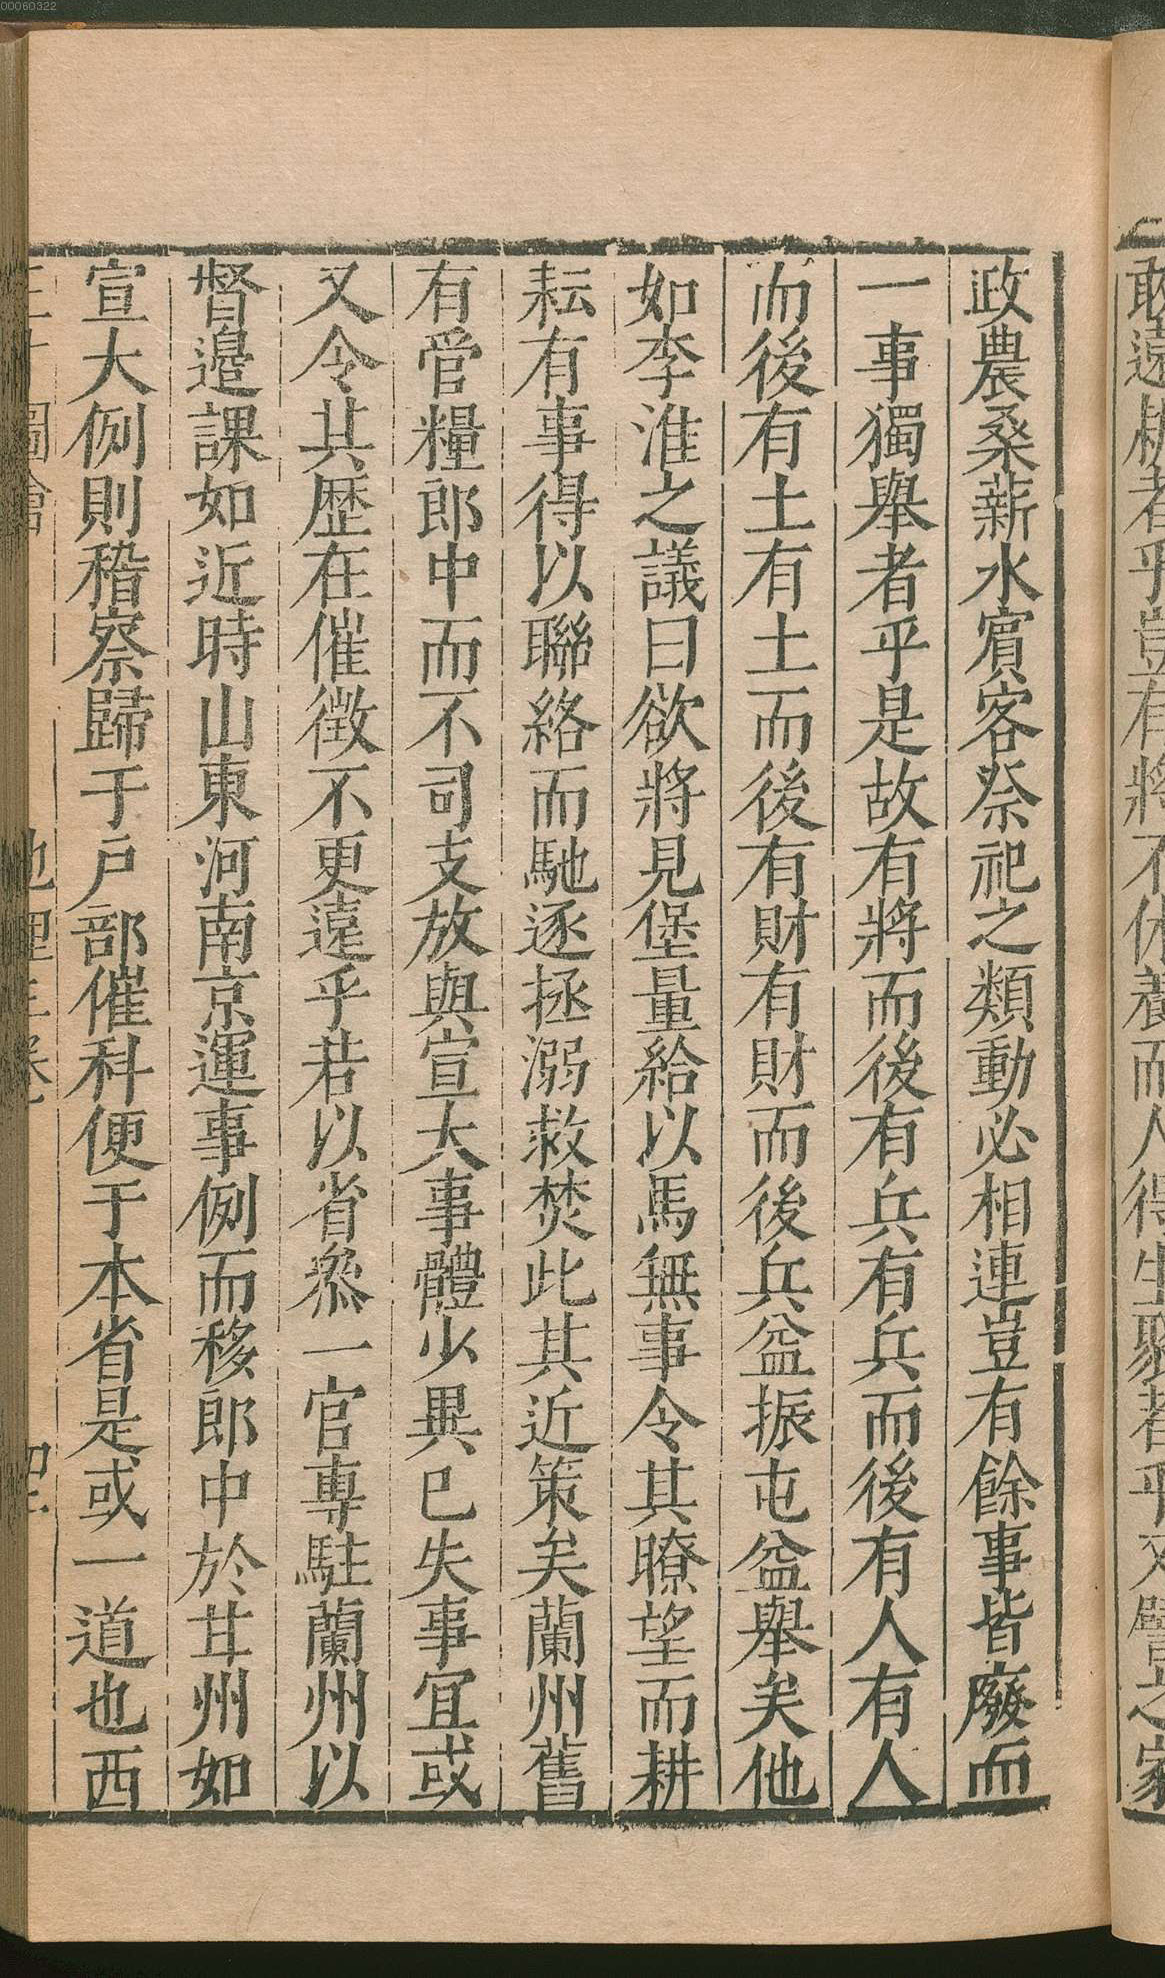 00060322
敢遠
者乎豈有將不休養而人得生聚者乎又譬之家
政農桑薪水賓客祭祀之類動必相連豈有餘事皆廢而
一事獨舉者乎是故有將而後有兵有兵而後有人有人
而後有土有土而後有財有財而後兵益振屯益舉矣他
如李淮之議曰欲將見堡量給以馬無事令其瞭望而耕
耘有事得以聯絡而馳逐拯溺救焚此其近策矣蘭州舊
有管糧郎中而不司支放與宣大事體少異已失事宜或
又令其歷在催徵不更遠乎若以省叅一官專駐蘭州以
督邊課如近時山東河南京運事例而移郎中於甘州如
宣大例則稽察歸于戶部催科便于本省是或一道也西
圖會 地理三卷